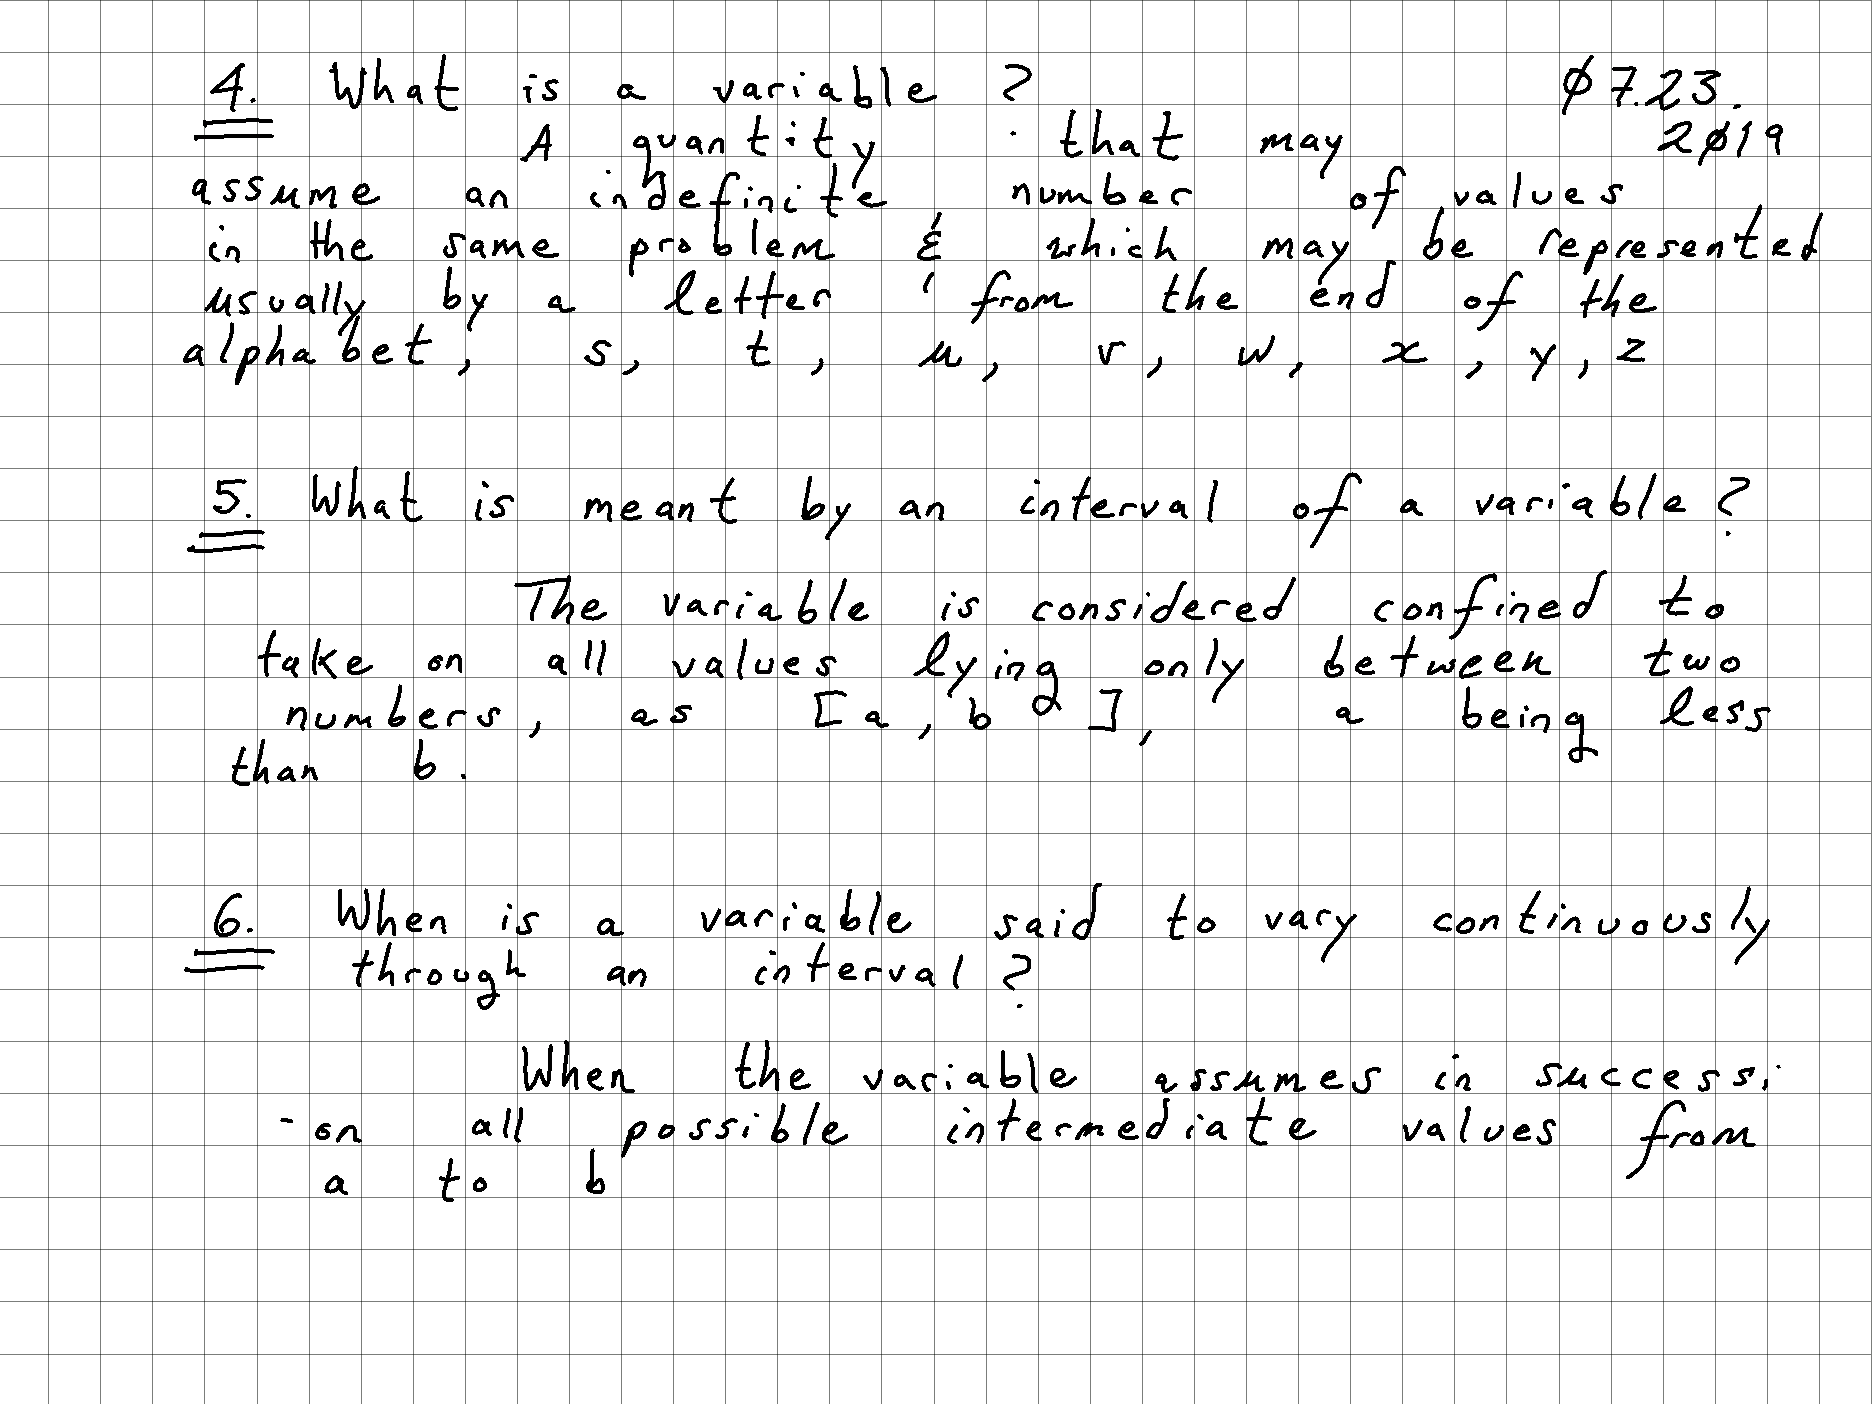 4. What is a variable ? Ø7.23.
A quantity that may 2Ø19
assume an indefinite number of values
in the same problem & which may be represented
usually by a letter from the end of the
alphabet, s, t, u, v, w, x, y, z
5. What is meant by an interval of a variable?
The variable is considered confined to
take on all values lying only between two
numbers, as [a, b], a being less
than b.
6. When is a variable said to vary continuously
through an interval?
When the variable assumes in successi
-on all possible intermediate values from
a to b